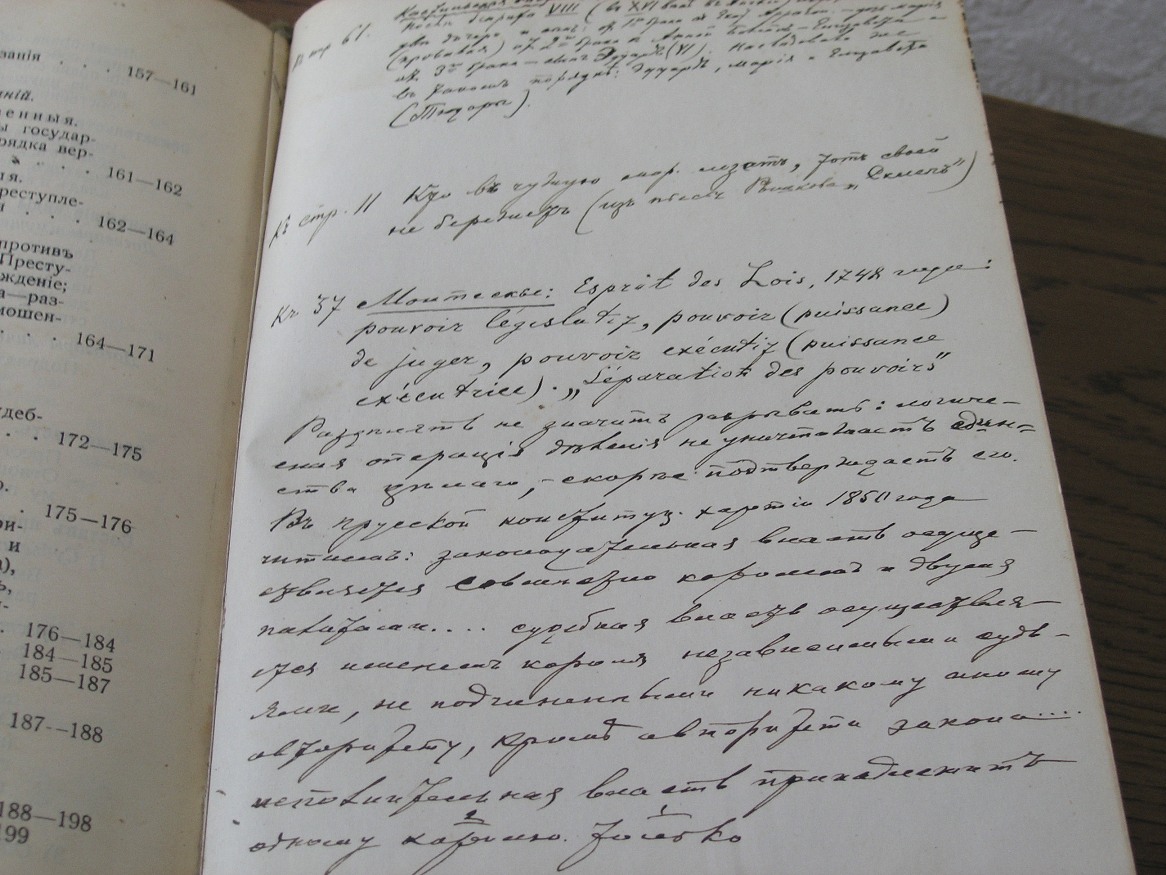 занія . . . 157—161
ній.
енныя.
ы государ-
рядка вер-
. . . 161—162
я.
реступле-
я . . . 162—164
противъ
Престу-
жденіе;
а—раз-
мошен-
. . . 164—171
удеб-
. . . 172—175
о.
. . 175—176
ри-
и
. 176—184
184—185
185—187
187--188
188—198
199
стр 61.
VIII (въ XVI
дочери
3го брака — Эдуардъ (VI). Наслѣдовали же
въ порядкѣ: Эдуардъ, Марія и Елизавета
(Тюдоры).
Къ стр. 11 Кто въ чужую лѣзть, тотъ своей
не бережетъ (изъ
Къ 37 Монтескье: Esprit des Lois, 1748 года:
pouvoir législatif, pouvoir (puissance)
de juger, pouvoir exécutif (puissance
exécutrice). „Séparation des pouvoirs"
Раздѣлять не значитъ разрывать: логиче-
ская операція дѣленія не уничтожаетъ един-
ства цѣлаго, - скорѣе подтверждаетъ его.
Въ прусской конституц. хартіи 1850 года
читаемъ: законодательная власть осуще-
ствляется совмѣстно королемъ и двумя
палатами.... судебная власть осуществля-
ется именемъ короля независимыми судь-
ями, не подчиненными никакому иному
авторитету, кромѣ авторитета закона....
исполнительная власть принадлежитъ
одному королю. только